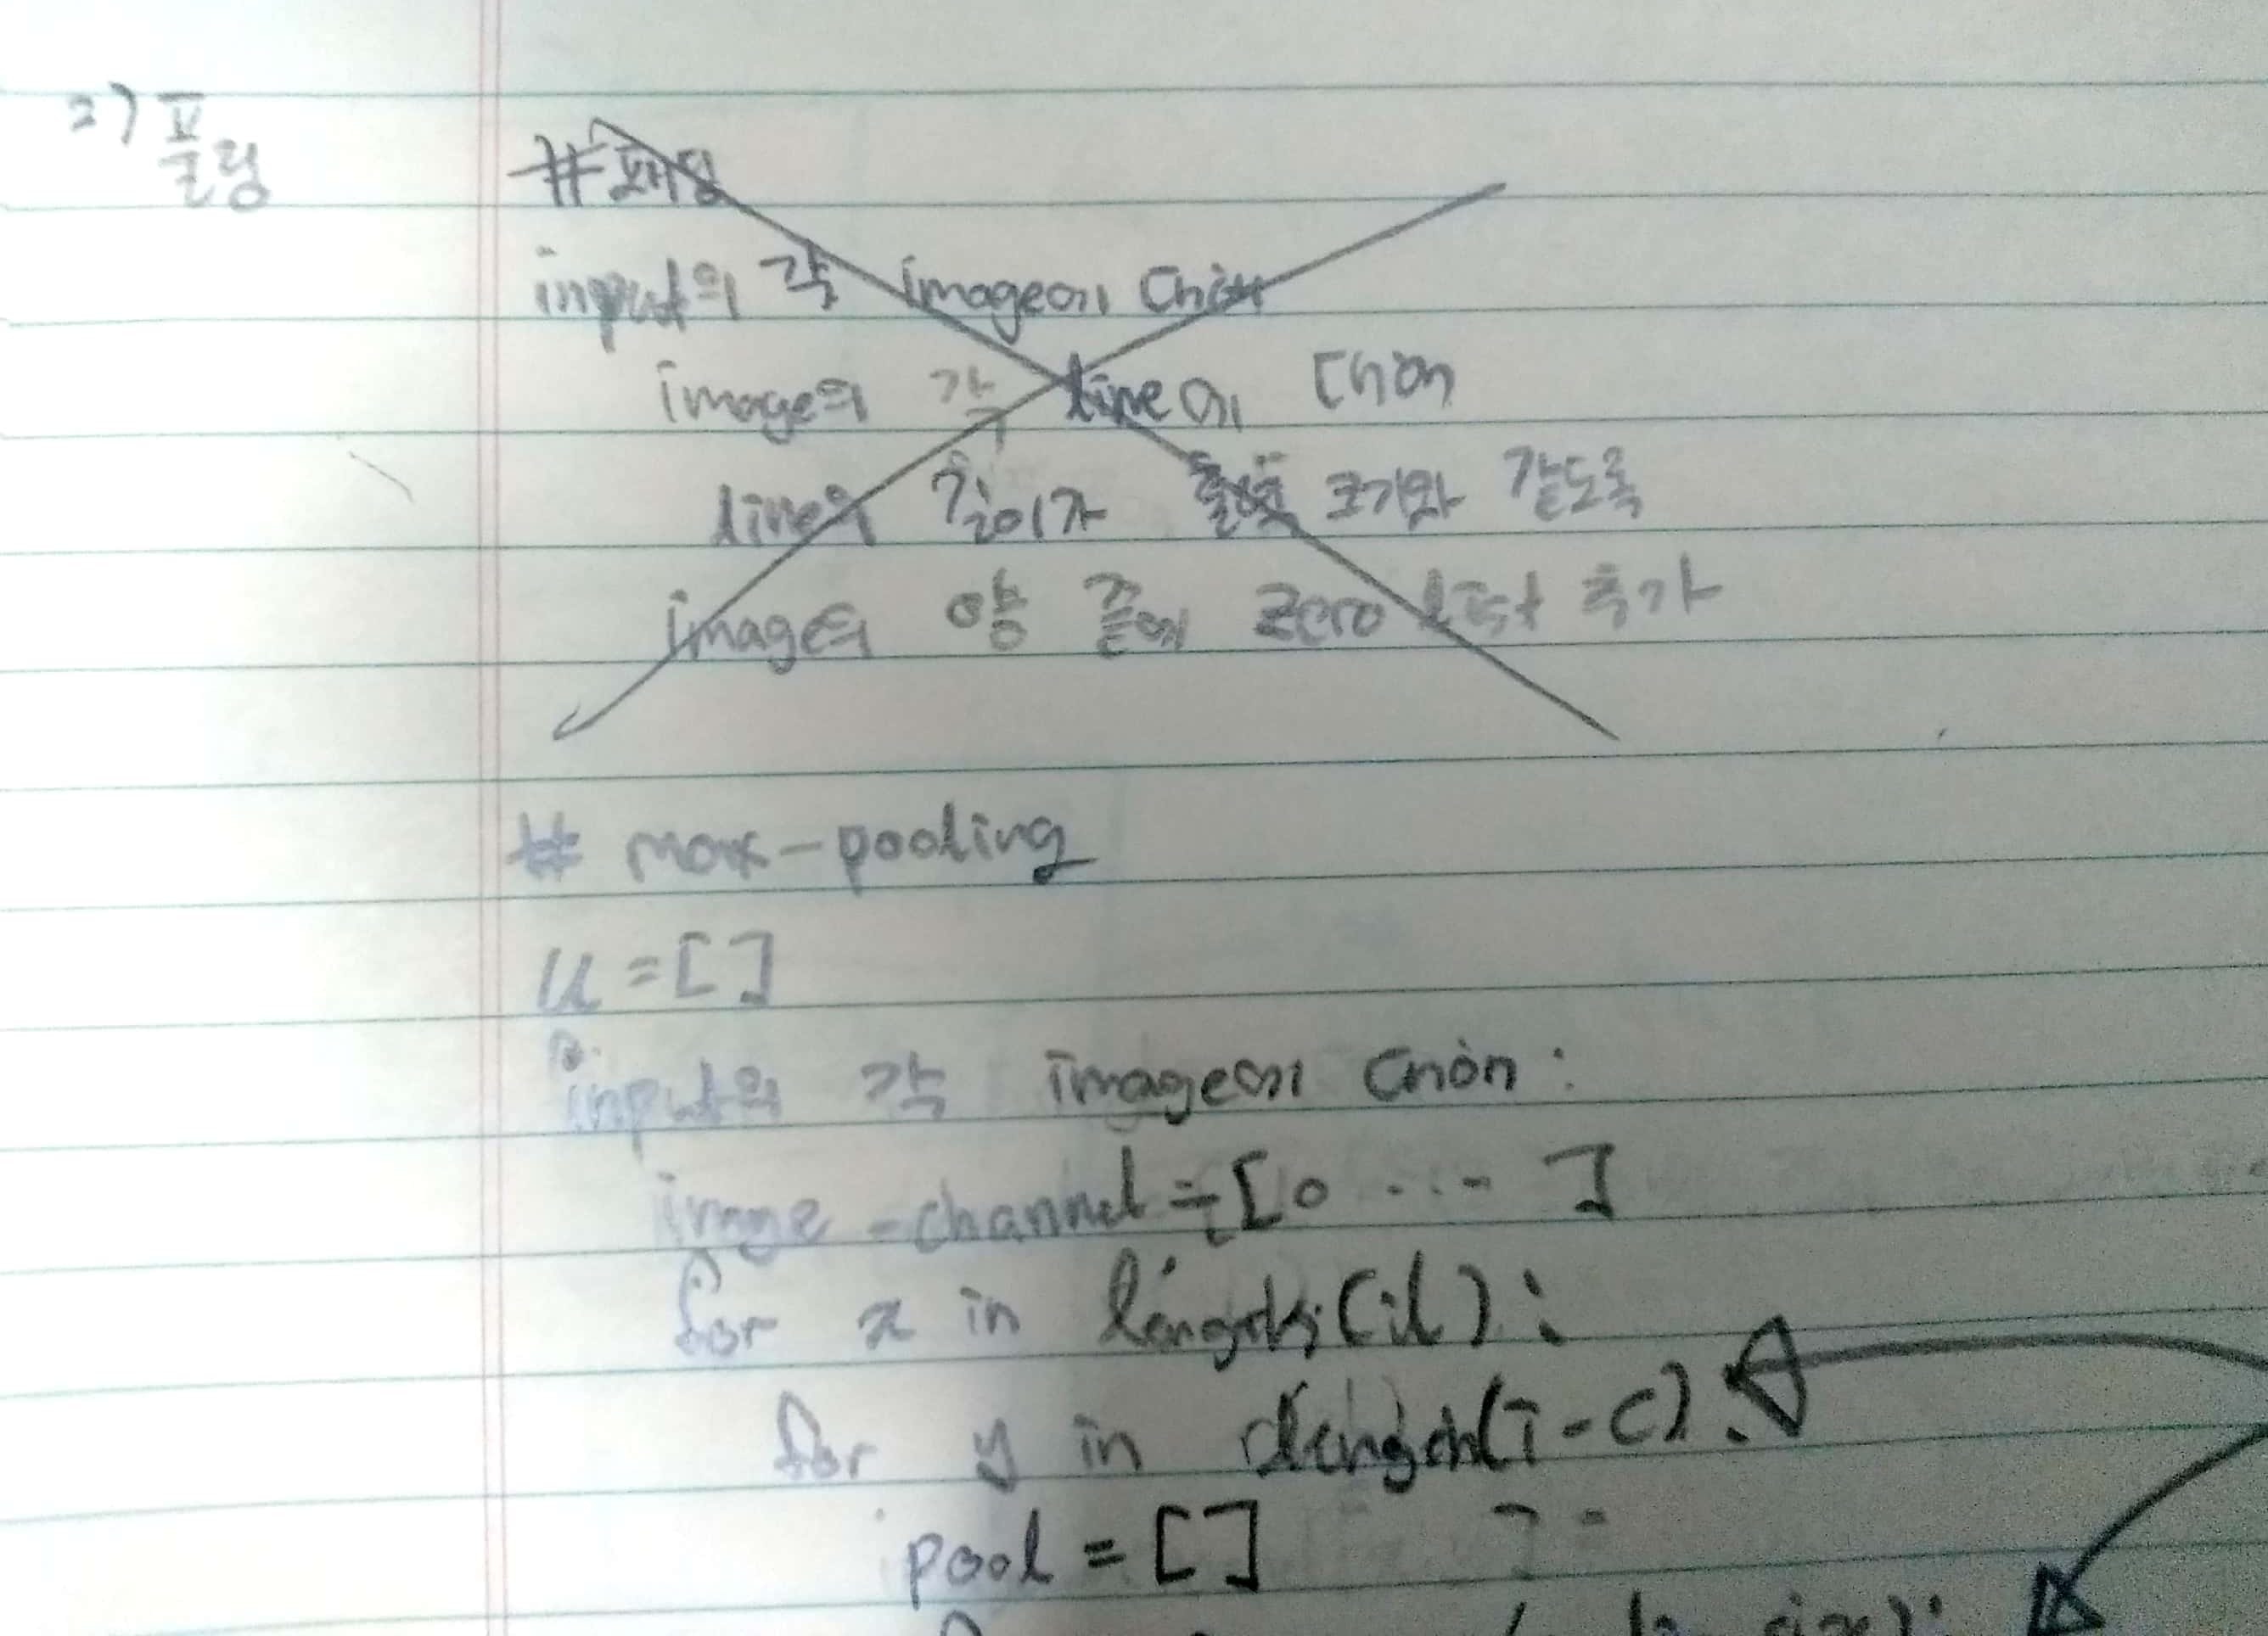 2) 풀링
# 패딩
input의 각 image에 대해
image의 각 line에 대해
line의 길이가 출력 크기와 같도록
image의 양 끝에 zero list 추가
# max-pooling
u = []
input의 각 image에 대해:
image-channel = [0 ... ]
for x in length(il):
for y in length(i-c):
pool = []
size):